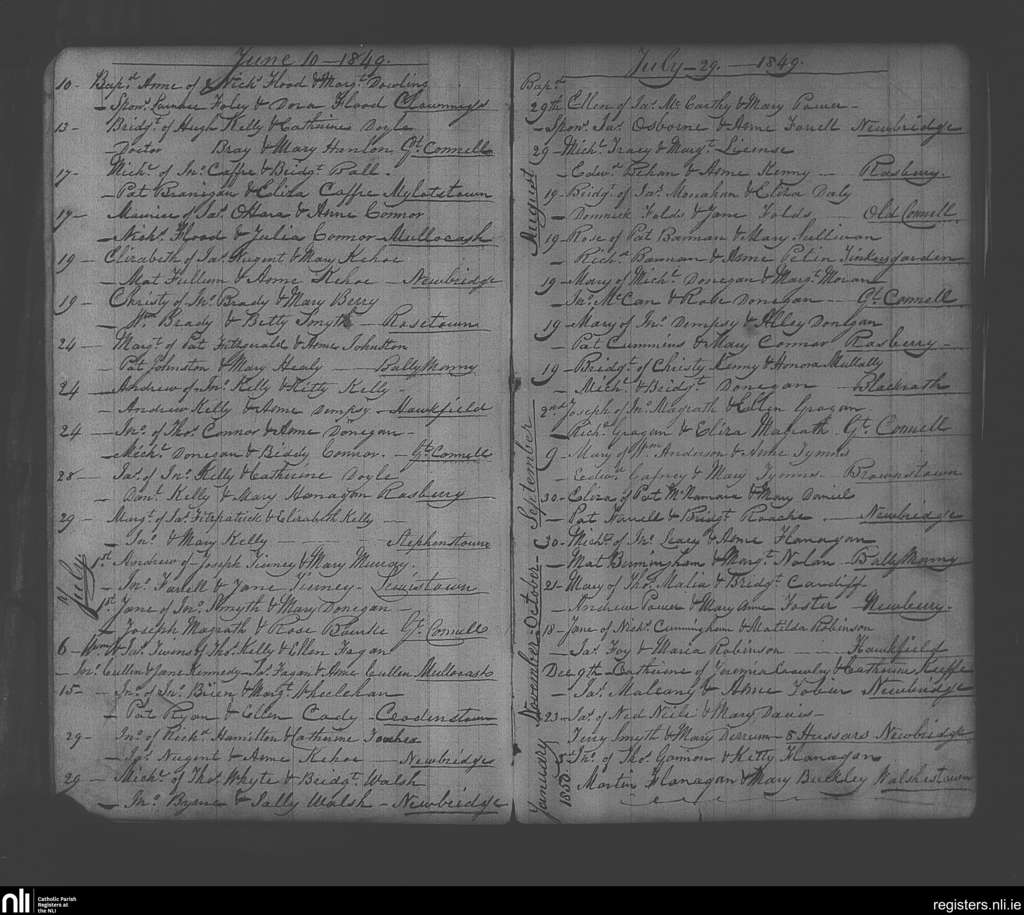 June 10 - 1849.
10 - Bapt. Anne of Nichs. Flood & Margt. Dowling
- Spons. Laurence Foley & Dora Flood Clownings
13 - Bridgt. of Hugh Kelly & Catherine Doyle
- Doctor Bray & Mary Hanlon Gt. Connell
17 - Michl. of Jno. Caffre & Bridgt. Ball.
- Pat Branigan & Eliza Caffre Mylotstown
19 - Maurice of Jas. OHara & Anne Connor
- Nichs. Flood & Julia Connor - Mullocash
19 - Elizabeth of Jas. Nugent & Mary Kehoe
- Mat Fullum & Anne Kehoe - Newbridge
19 - Christy of Jno. Brady & Mary Berry
- Wm. Brady & Betty Smyth - Rosetown
24 - Margt. of Pat Fitzgerald & Anne Johnston
- Pat Johnston & Mary Healy - BallyManny
24 - Andrew of Jno. Kelly & Kitty Kelly -
- Andrew Kelly & Anne Dempsy - Hawkfield
24 - Jno. of Thos. Connor & Anne Donegan -
- Michl. Donegan & Biddy Connor. - Gt. Connell
28 - Jas. of Jno. Kelly & Catherine Doyle
- Danl. Kelly & Mary Hanagan Rasberry
29 - Margt. of Jas. Fitzpatrick & Elizabeth Kelly -
- Jno. & Mary Kelly - Stephenstown
July
1st. Andrew of Joseph Tinney & Mary Murray.
- Jno. Farrell & Jane Tinney - Lewistown
1st. Jane of Jno. Smyth & Mary Donegan -
- Joseph Magrath & Rose Bourke Gt. Connell
6 - Wm. & Jas. Twins of Thos. Kelly & Ellen Fagan
- Jno. Cullen & Jane Kennedy - Jas. Fagan & Anne Cullen Mullocash
15 - Jno. of Jno. Brien & Margt. Wheelehan
- Pat Ryan & Ellen Cody -
29 - Jno. of Richd. Hamilton & Catherine
- Jas. Nugent & Anne Kehoe - Newbridge
29 - Michl. of Thos. Whyte & Bridgt. Walsh
- Jno. Byrne & Sally Walsh - Newbridge
July - 29. - 1849.
Bapt.
29th Ellen of Jas. McCarthy & Mary Power -
- Spons. Jas. Osborne & Anne Farrell Newbridge
29 - Michl. Tracy & Margt. License
- Edwd. Behan & Anne Kenny - Rasberry.
August
19 - Bridgt. of Jas. Monahan & Eliza Daly
- Dominick Folds & Jane Folds - Old Connell.
19 - Rose of Pat Bannan & Mary Sullivan
- Richd. Bannan & Anne Pelin Tinkersgarden
19 - Mary of Michl. Donegan & Margt. Moran
- Jas. McCan & Rose Donegan - Gt. Connell
19 - Mary of Jno. Dempsy & Alley Donegan
- Pat Cummins & Mary Connor Rasberry -
19 - Bridgt. of Christy Kenny & Honora Mullally
- Michl. & Bridgt. Donegan - Blackrath
September
2nd. Joseph of Jno. Magrath & Ellen Gragan
- Richd. Gragan & Eliza Magrath. Gt. Connell
9 - Mary of Wm. Anderson & Anne Tymns
- Edwd. Cafrey & Mary Tymns - Brownstown
30 - Eliza of Pat McNamara & Mary Daniels
- Pat Farrell & Bridgt. Roache. - Newbridge
30 - Michl. of Jno. Leacy & Anne Flanagan
- Mat Birmingham & Margt. Nolan - BallyManny
October
21 - Mary of Thos. Malia & Bridgt. Cardiff
- Andrew Power & Mary Anne Foster - Newberry.
November
18 - Jane of Nichs. Cunningham & Matilda Robinson
- Jas. Foy & Maria Robinson - Hawkfield
Dec 9th - Catherine of Jeremia Crawley & Catherine Keeffe
- Jas. Maleany & Anne Tobin Newbridge
23 - Jas. of Ned Neile & Mary Davies -
Terry Smyth & Mary Derrum - 8 Hussars Newbridge
January
1850 - 5 - Jno. of Thos. Gannon & Kitty Flanagan
Martin Flanagan & Mary Buckley Walshestown
nli
Catholic Parish
Registers at
the NLI
registers.nli.ie